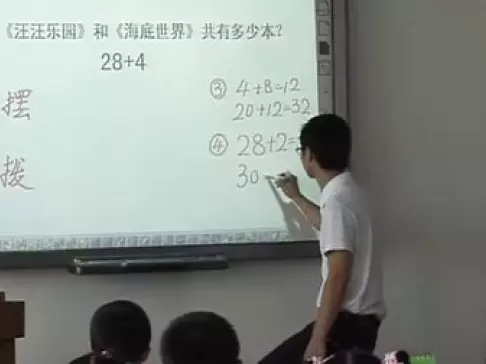 《汪汪乐园》和《海底世界》共有多少本?
28+4
摆
③ 4+8=12
20+12=32
拨
④ 28+2=
30